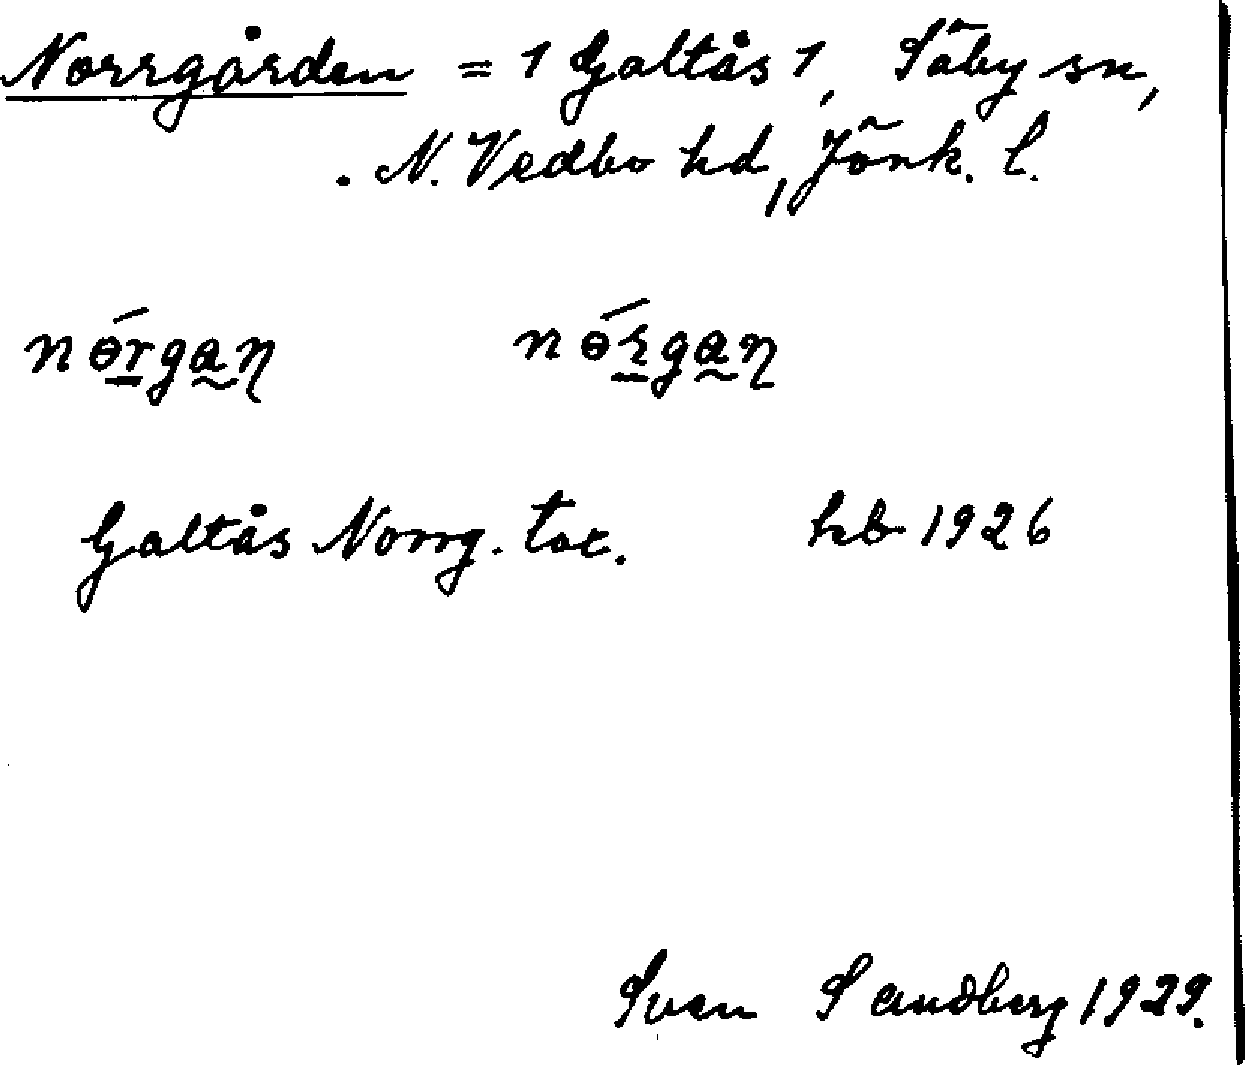 Norrgården = 1 Galtås 1, Säby sn,
N. Vedbo hd, Jönk. l.
nǿrgan nǿrgan
Galtås Norrg. hb 1926
Sven Sandberg 1929.